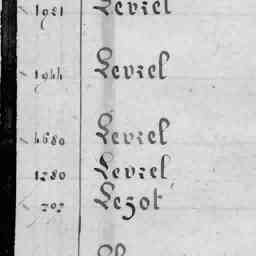 1981 Levzel
1944 Levzel
4680 Levzel
1280 Levzel
702 Lezot